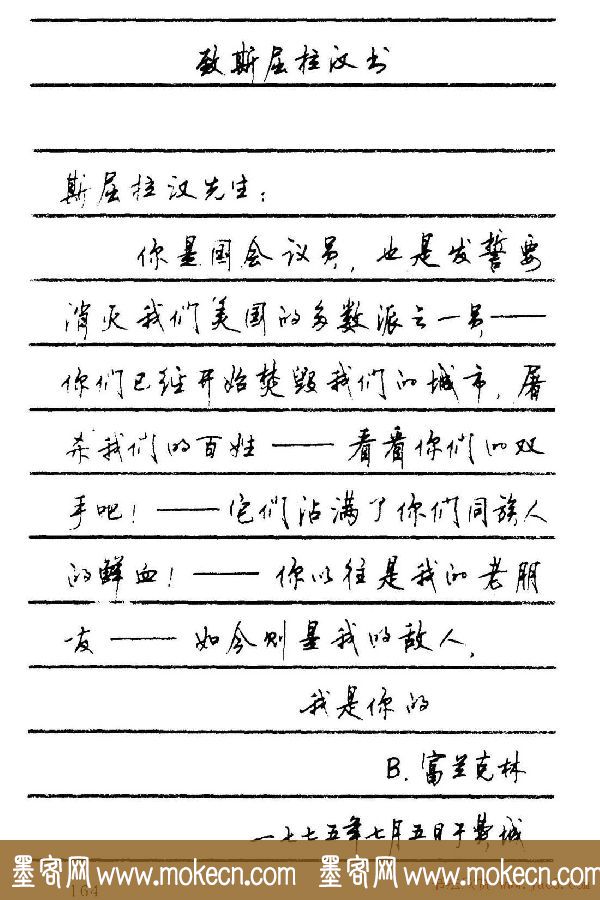 致斯屈拉汉书
斯屈拉汉先生：
你是国会议员，也是发誓要
消灭我们美国的多数派之一员——
你们已经开始焚毁我们的城市，屠
杀我们的百姓——看看你们的双
手吧！——它们沾满了你们同族人
的鲜血！——你以往是我的老朋
友——如今则是我的敌人，
我是你的
B.富兰克林
一七七五年七月五日于费城
墨客网 www.mokecn.com 墨客网 www.mokecn.com
164